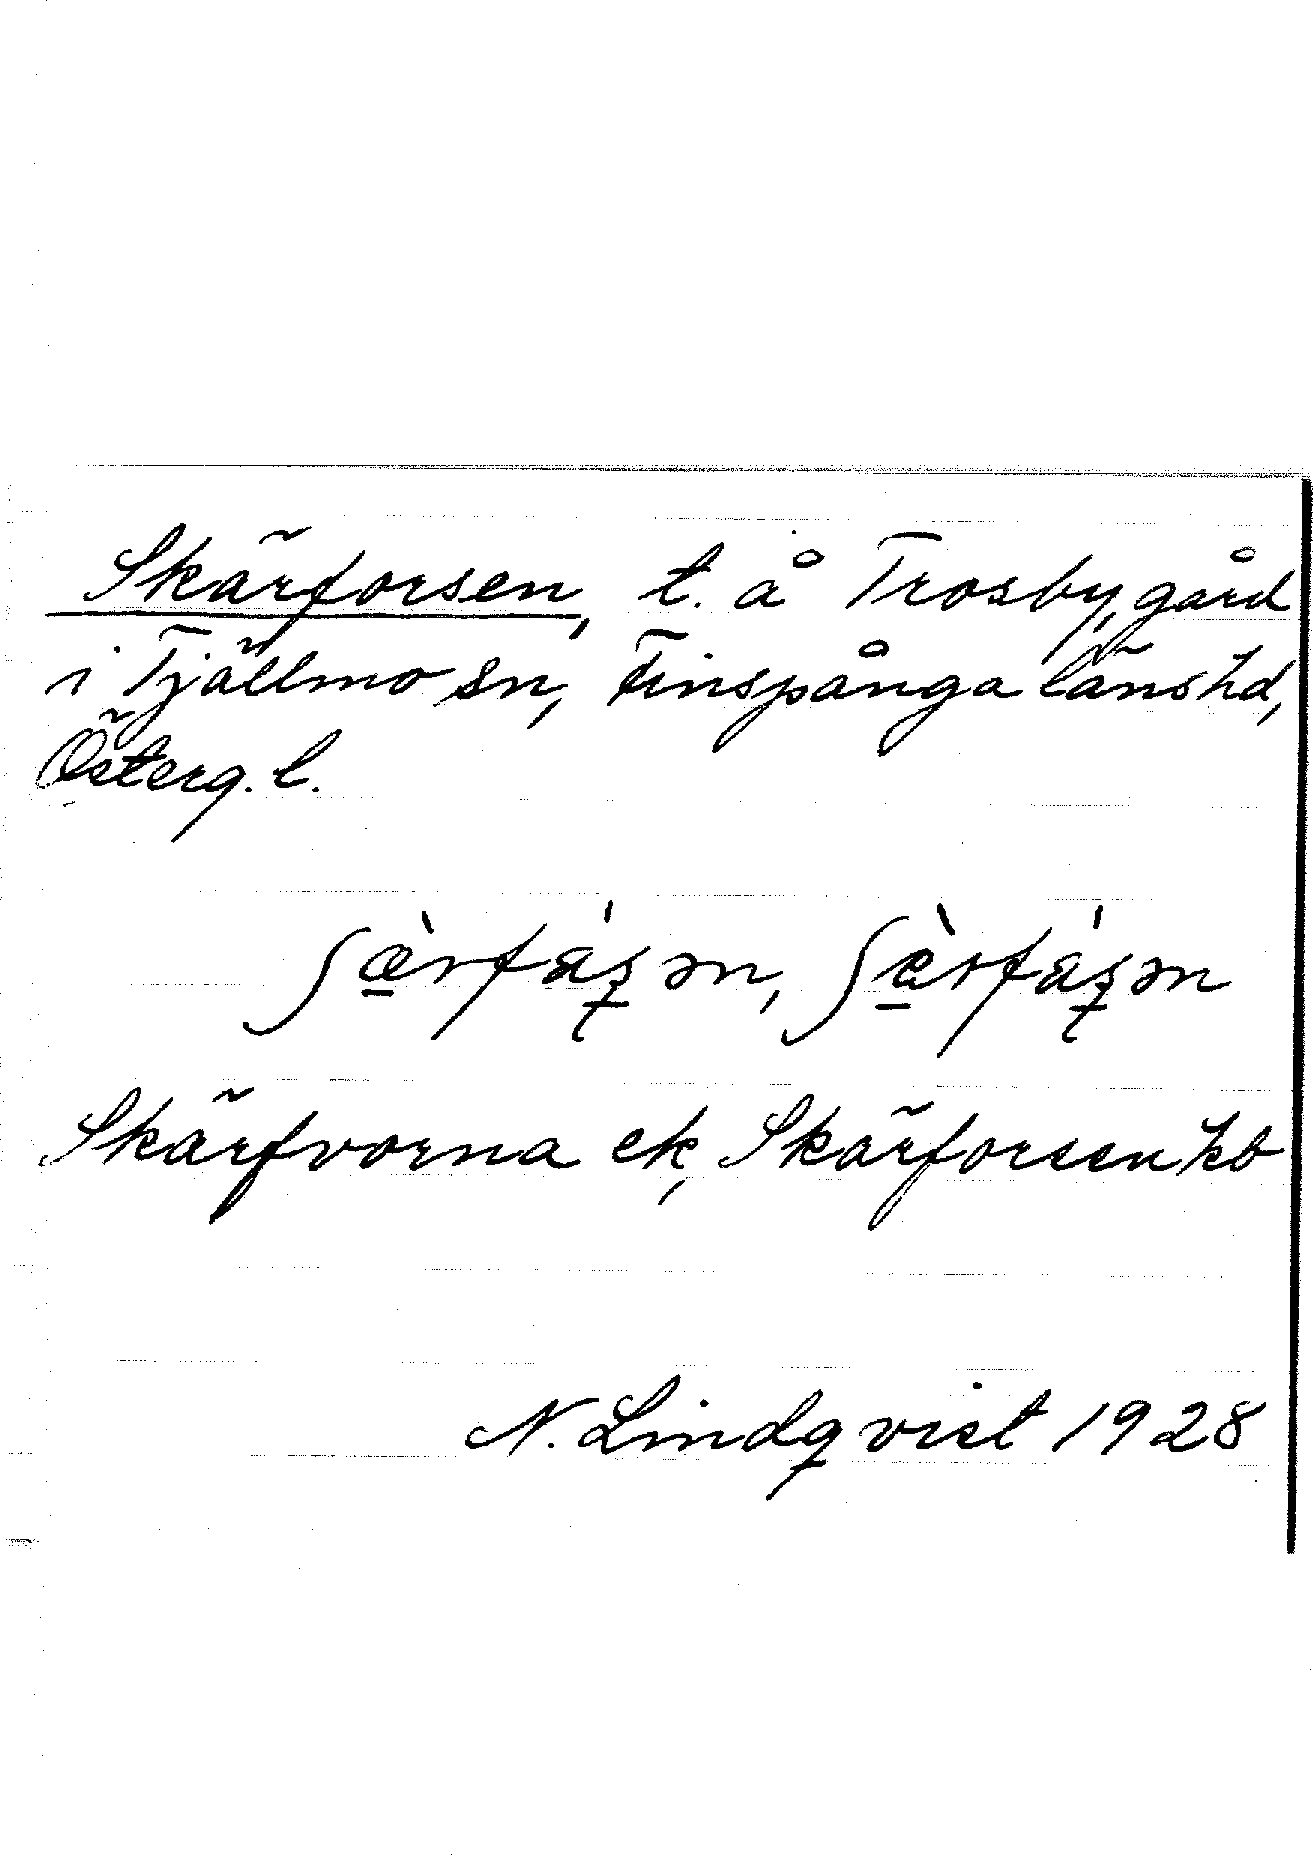 Skärforsen, t. å Trosby, gård
i Tjällmo sn, Finspånga läns hd,
Österg. l.
ʃæ̀rfàʂən, ʃèrfàʂən
Skärfvorna ek, Skärforsen hb
N. Lindqvist 1928